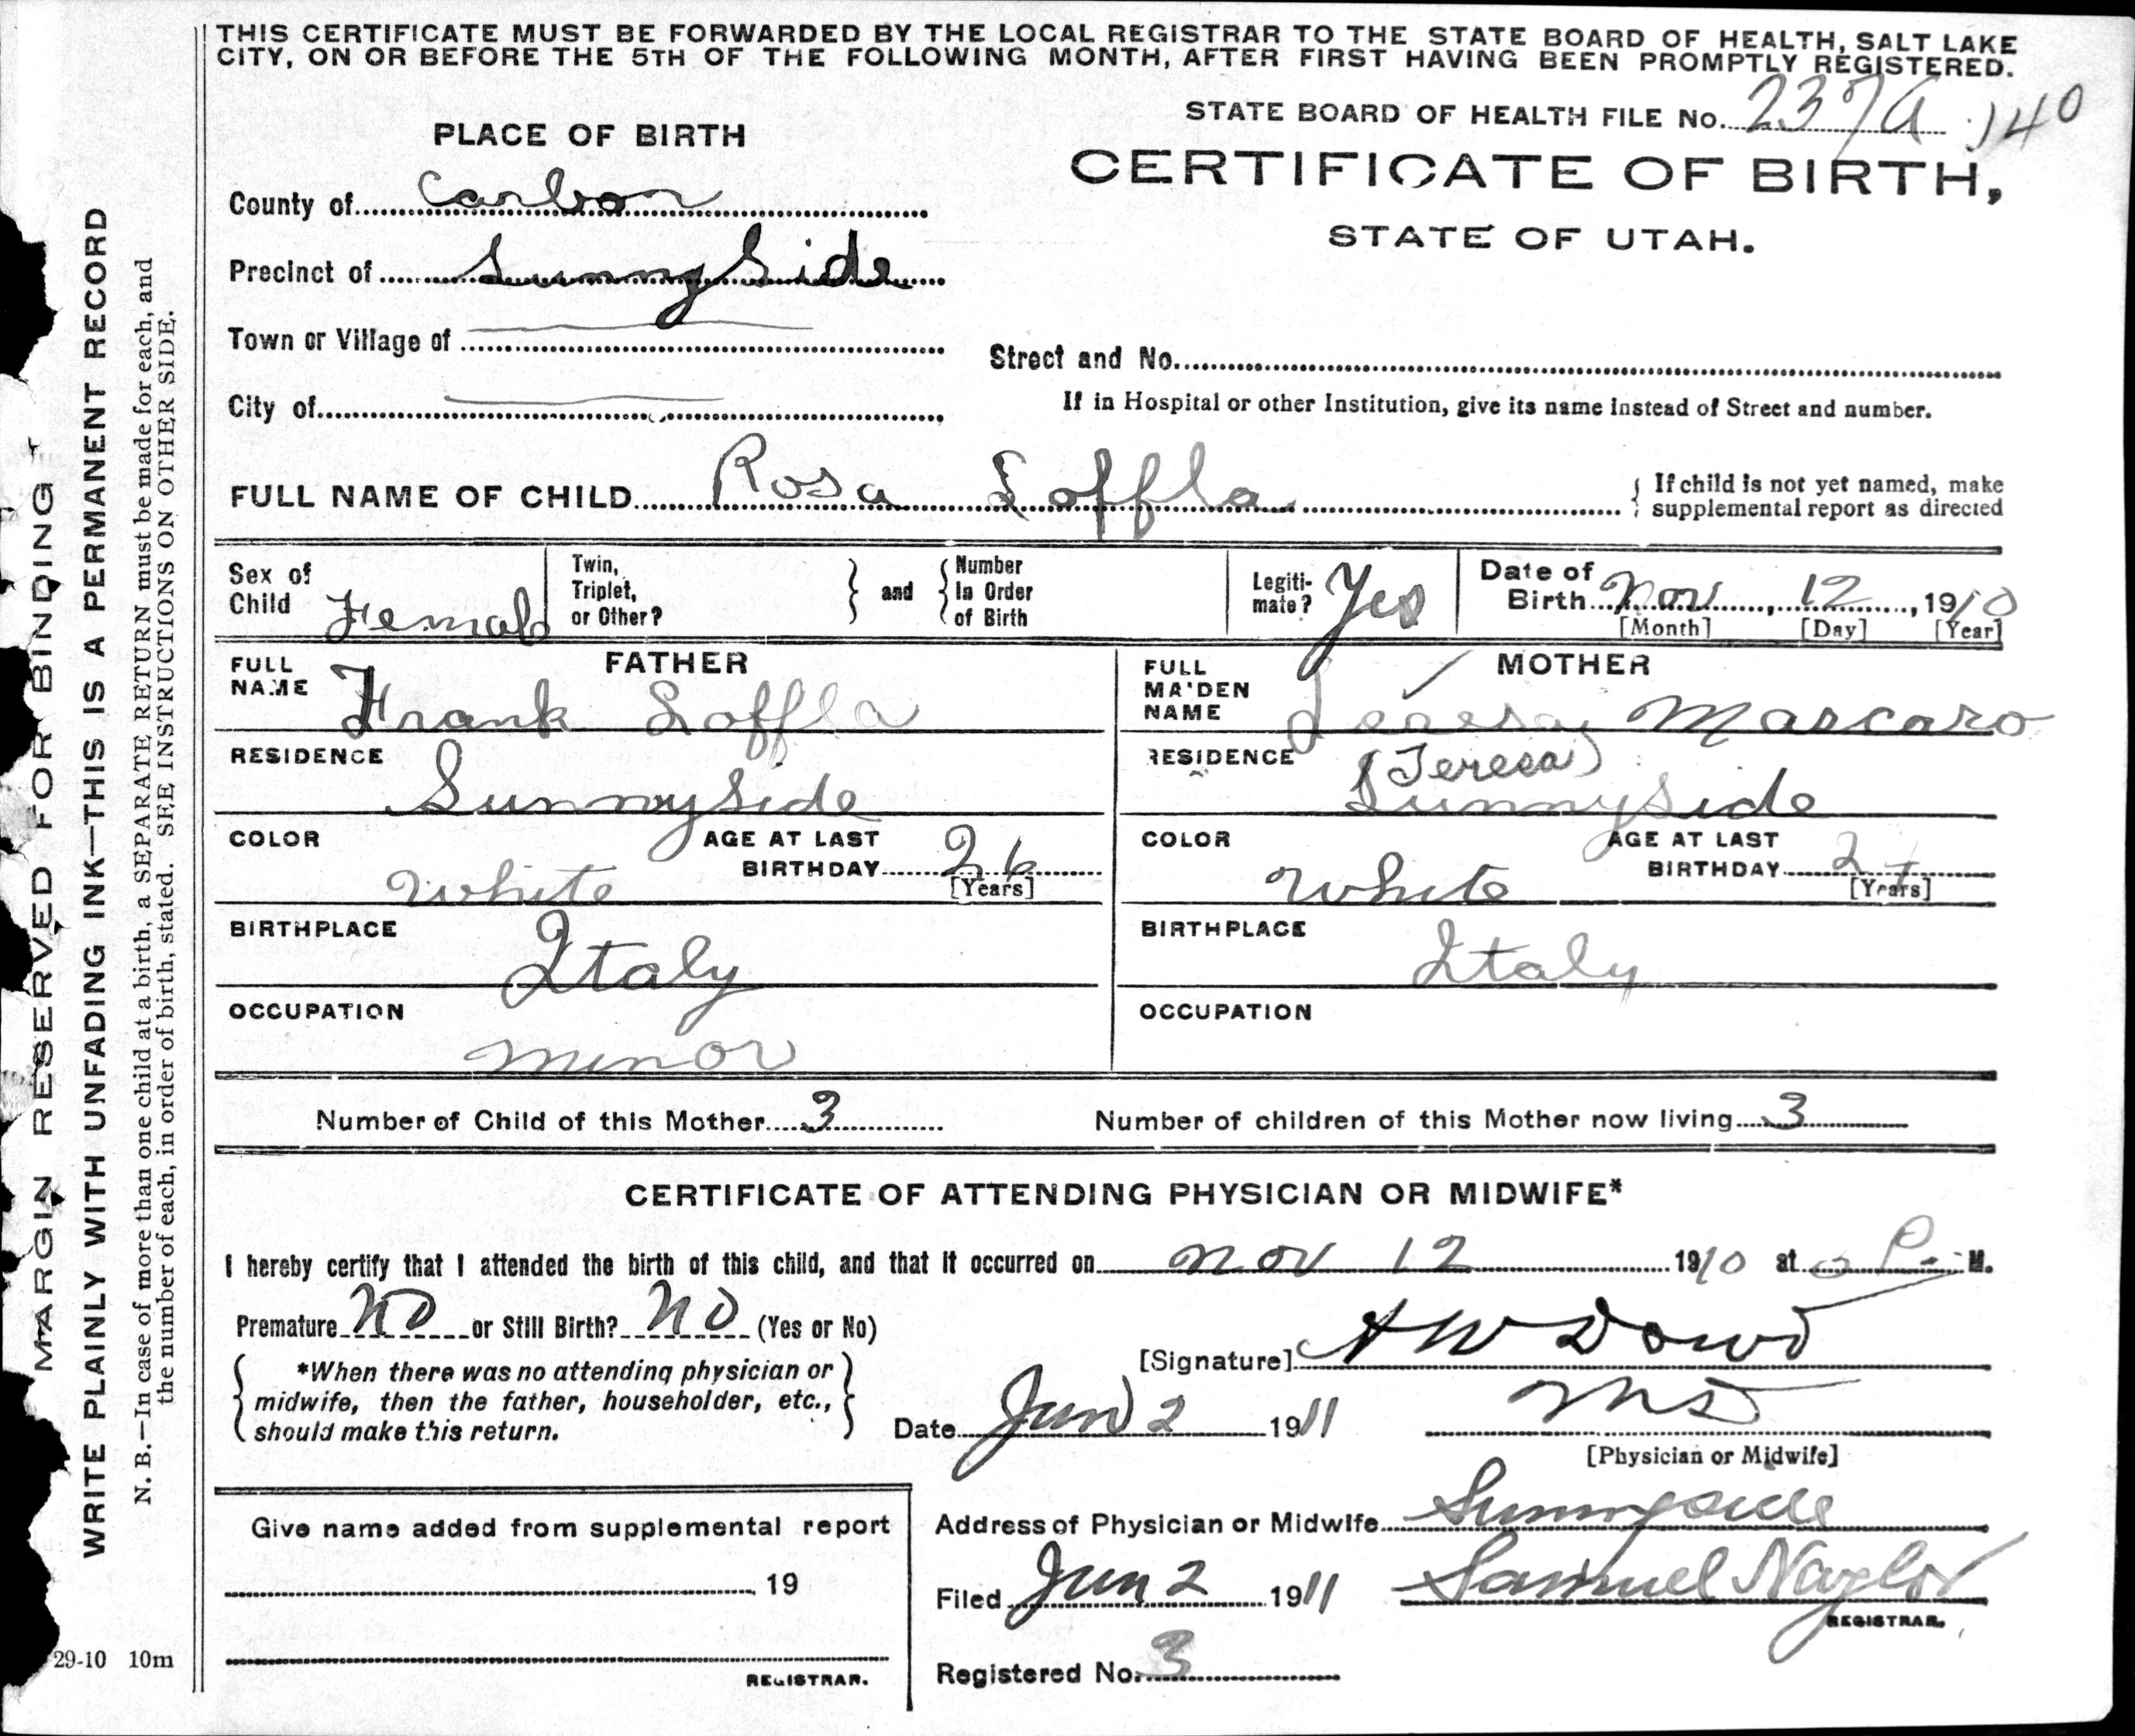 THIS CERTIFICATE MUST BE FORWARDED BY THE LOCAL REGISTRAR TO THE STATE BOARD OF HEALTH, SALT LAKE
CITY, ON OR BEFORE THE 5TH OF THE FOLLOWING MONTH, AFTER FIRST HAVING BEEN PROMPTLY REGISTERED.
STATE BOARD OF HEALTH FILE No. 237A 140
PLACE OF BIRTH
CERTIFICATE OF BIRTH,
STATE OF UTAH.
County of Carbon
Precinct of Sunnyside
Town or Village of
Street and No.
City of
If in Hospital or other Institution, give its name instead of Street and number.
FULL NAME OF CHILD Rosa Loffla
If child is not yet named, make
supplemental report as directed
Sex of Child Female
Twin, Triplet, or Other?
and
Number In Order of Birth
Legiti-mate? Yes
Date of Birth Nov, 12, 1910
[Month] [Day] [Year]
FATHER
FULL NAME Frank Loffla
RESIDENCE
Sunnyside
COLOR White
AGE AT LAST BIRTHDAY 26
[Years]
BIRTHPLACE
Italy
OCCUPATION
minor
MOTHER
FULL MAIDEN NAME Mascaro
(Teresa)
RESIDENCE
Sunnyside
COLOR White
AGE AT LAST BIRTHDAY
[Years]
BIRTHPLACE
Italy
OCCUPATION
Number of Child of this Mother 3
Number of children of this Mother now living 3
CERTIFICATE OF ATTENDING PHYSICIAN OR MIDWIFE*
I hereby certify that I attended the birth of this child, and that it occurred on Nov 12 1910 at P. M.
Premature NO or Still Birth? NO (Yes or No)
[Signature] A W Dowd
*When there was no attending physician or
midwife, then the father, householder, etc.,
should make this return.
Date Jan 2 1911
MD
[Physician or Midwife]
Give name added from supplemental report
19
REGISTRAR.
Address of Physician or Midwife Sunnyside
Filed Jan 2 1911 Samuel Naylor
REGISTRAR.
Registered No. 3
MARGIN RESERVED FOR BINDING
WRITE PLAINLY WITH UNFADING INK—THIS IS A PERMANENT RECORD
N. B.—In case of more than one child at a birth, a SEPARATE RETURN must be made for each, and
the number of each, in order of birth, stated. SEE INSTRUCTIONS ON OTHER SIDE.
29-10 10m